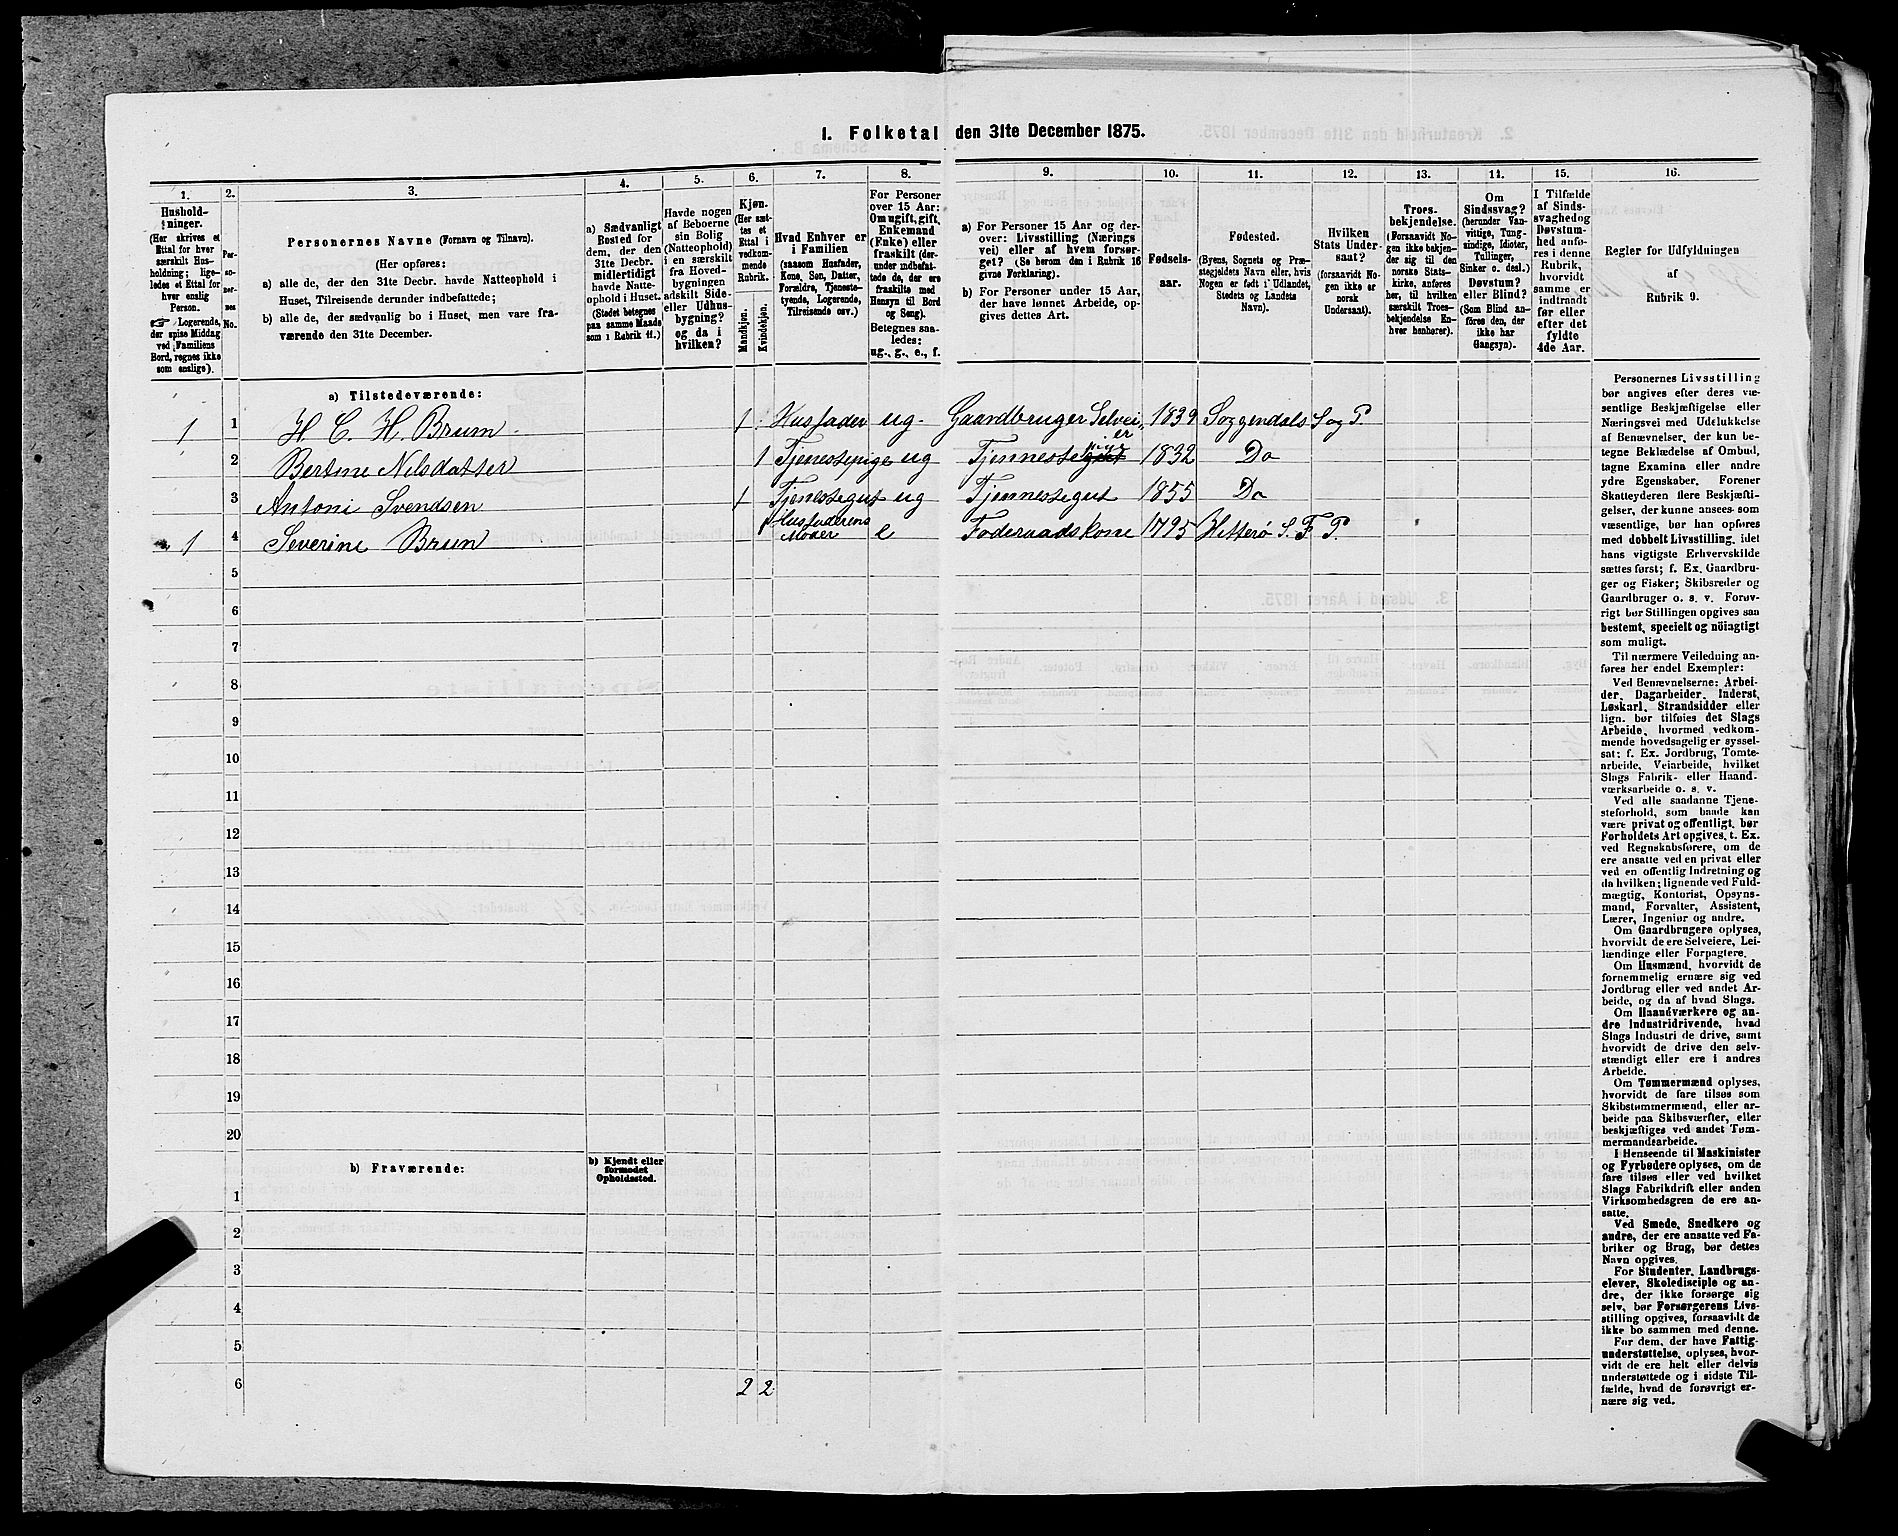 1. Folketal den 31te December 1875.
1. 2. 3. 4. 5. 6. 7. 8. 9. 10. 11. 12. 13. 14. 15. 16.
Hushold-
ninger.
(Her skrives et
Ettal for hver
særskilt Hus-
holdning; lige-
ledes et Ettal for
hver enslig
Person.
☞ Logerende,
der spise Middag
ved Familiens
Bord, regnes ikke
som enslige).
Per-
so-
ner-
nes
No.
Personernes Navne (Fornavn og Tilnavn).
(Her opføres:
a) alle de, der den 31te Decbr. havde Natteophold i
Huset, Tilreisende derunder indbefattede;
b) alle de, der sædvanlig bo i Huset, men vare fra-
værende den 31te December.
a) Sædvanligt
Bosted for
dem, der den
31te Decbr.
midlertidigt
havde Natte-
ophold i Huset.
(Stedet betegnes
paa samme Maade
som i Rubrik 11.)
Havde nogen
af Beboerne
sin Bolig
(Natteophold)
i en særskilt
fra Hoved-
bygningen
adskilt Side-
eller Udhus-
bygning?
og da i
hvilken?
Kjøn.
(Her sæt-
tes et
Ettal i
vedkom-
mende
Rubrik.
Mandkjøn.
Kvindekjøn.
Hvad Enhver er
i Familien
(saasom Husfader,
Kone, Søn, Datter,
Forældre, Tjeneste-
tyende, Logerende,
Tilreisende osv.)
For Personer
over 15 Aar:
Om ugift, gift,
Enkemand
(Enke) eller
fraskilt (der-
under indbefat-
tede de, der ere
fraskilte med
Hensyn til Bord
og Seng).
Betegnes saa-
ledes:
ug., g., e., f.
a) For Personer 15 Aar og der-
over: Livsstilling (Nærings
vei) eller af hvem forsør-
get? (Se herom den i Rubrik 16
givne Forklaring).
b) For Personer under 15 Aar,
der have lønnet Arbeide, op-
gives dettes Art.
Fødsels-
aar.
Fødested.
(Byens, Sognets og Præ-
stegjeldets Navn eller, hvis
Nogen er født i Udlandet,
Stedets og Landets
Navn).
Hvilken
Stats Under-
saat?
(forsaavidt No-
gen ikke er
norsk
Undersaat).
Troes-
bekjendelse.
(Forsaavidt No-
gen ikke bekjen-
der sig til den
norske Stats-
kirke, anføres
her, til hvilken
særskilt Troes-
bekjendelse En-
hver henhører).
Om
Sindssvag?
(herunder Van-
vittige, Tung-
sindige, Idioter,
Tullinger,
Sinker o. desl.)
Døvstum?
eller Blind?
(Som Blind an-
føres den, der
ikke har
Gangsyn).
I Tilfælde
af Sinds-
svaghed og
Døvstum-
hed anfø-
res i denne
Rubrik,
hvorvidt
samme er
indtraadt
før eller
efter det
fyldte
4de Aar.
Regler for Udfyldningen
af
Rubrik 9.
a) Tilstedeværende:
1 1 H. C. H. Brun. 1 Husfader ug. Gaardbruger Selveier 1839 Soggendals Sog P.
2 Bertine Nilsdatter 1 Tjenestepige ug Tjennestepige 1832 Do
3 Antoni Svendsen 1 Tjenestegut ug Tjennestegut 1855 Do
1 4 Severine Brun 1 Husfaderens Moder e Føderaadskone 1795 Hitterø S. F. P.
5
6
7
8
9
10
11
12
13
14
15
16
17
18
19
20
b) Fraværende:
b) Kjendt eller
formodet
Opholdssted.
1
2
3
4
5
6 2 2
Personernes Livsstilling
bør angives efter deres væ-
sentlige Beskjæftigelse eller
Næringsvei med Udelukkelse
af Benævnelser, der kun be-
tegne Beklædelse af Ombud,
tagne Examina eller andre
ydre Egenskaber. Forener
Skatteyderen flere Beskjæfti-
gelser, der kunne ansees som
væsentlige, bør han opføres
med dobbelt Livsstilling, idet
hans vigtigste Erhvervskilde
sættes først; f. Ex. Gaardbru-
ger og Fisker; Skibsreder og
Gaardbruger o. s. v. Forøv-
rigt bør Stillingen opgives saa
bestemt, specielt og nöiagtigt
som muligt.
Til nærmere Veiledning an-
føres her endel Exempler:
Ved Benævnelserne: Arbei-
der, Dagarbeider, Inderst,
Løskarl, Strandsidder eller
lign. bør tilføies det Slags
Arbeide, hvormed vedkom-
mende hovedsagelig er syssel-
sat; f. Ex. Jordbrug, Tomte-
arbeide, Veiarbeide, hvilket
Slags Fabrik- eller Haand-
værksarbeide o. s. v.
Ved alle saadanne Tjene-
steforhold, som baade kan
være privat og offentligt, bør
Forholdets Art opgives, t. Ex.
ved Regnskabsførere, om de
ere ansatte ved en privat eller
ved en offentlig Indretning og
da hvilken; lignende ved Fuld-
mægtig, Kontorist, Opsyns-
mand, Forvalter, Assistent,
Lærer, Ingeniør og andre.
Om Gaardbrugere oplyses,
hvorvidt de ere Selveiere, Lei-
lændinge eller Forpagtere.
Om Husmænd, hvorvidt de
fornemmelig ernære sig ved
Jordbrug eller ved andet Ar-
beide, og da af hvad Slags.
Om Haandværkere og an-
dre Industridrivende, hvad
Slags Industri de drive, samt
hvorvidt de drive den selv-
stændigt eller ere i andres
Arbeide.
Om Tømmermænd oplyses,
hvorvidt de fare tilsøs som
Skibstømmermænd, eller ar-
beide paa Skibsværfter, eller
beskjæftiges ved andet Tøm-
mermandsarbeide.
I Henseende til Maskinister
og Fyrbødere oplyses, om de
fare tilsøs eller ved hvilket
Slags Fabrikdrift eller anden
Virksomhedsgren de ere an-
satte.
Ved Smede, Snedkere og
andre, der ere ansatte ved Fa-
briker og Brug, bør dettes
Navn opgives.
For Studenter, Landbrugs-
elever, Skoledisciple og an-
dre, der ikke forsørge sig
selv, bør Forsørgerens Livs-
stilling opgives, forsaavidt de
ikke bo sammen med denne.
For dem, der have Fattig-
understøttelse, oplyses, hvor-
vidt de ere helt eller delvis
understøttede og i sidste Til-
fælde, hvad de forøvrigt er-
nære sig ved.